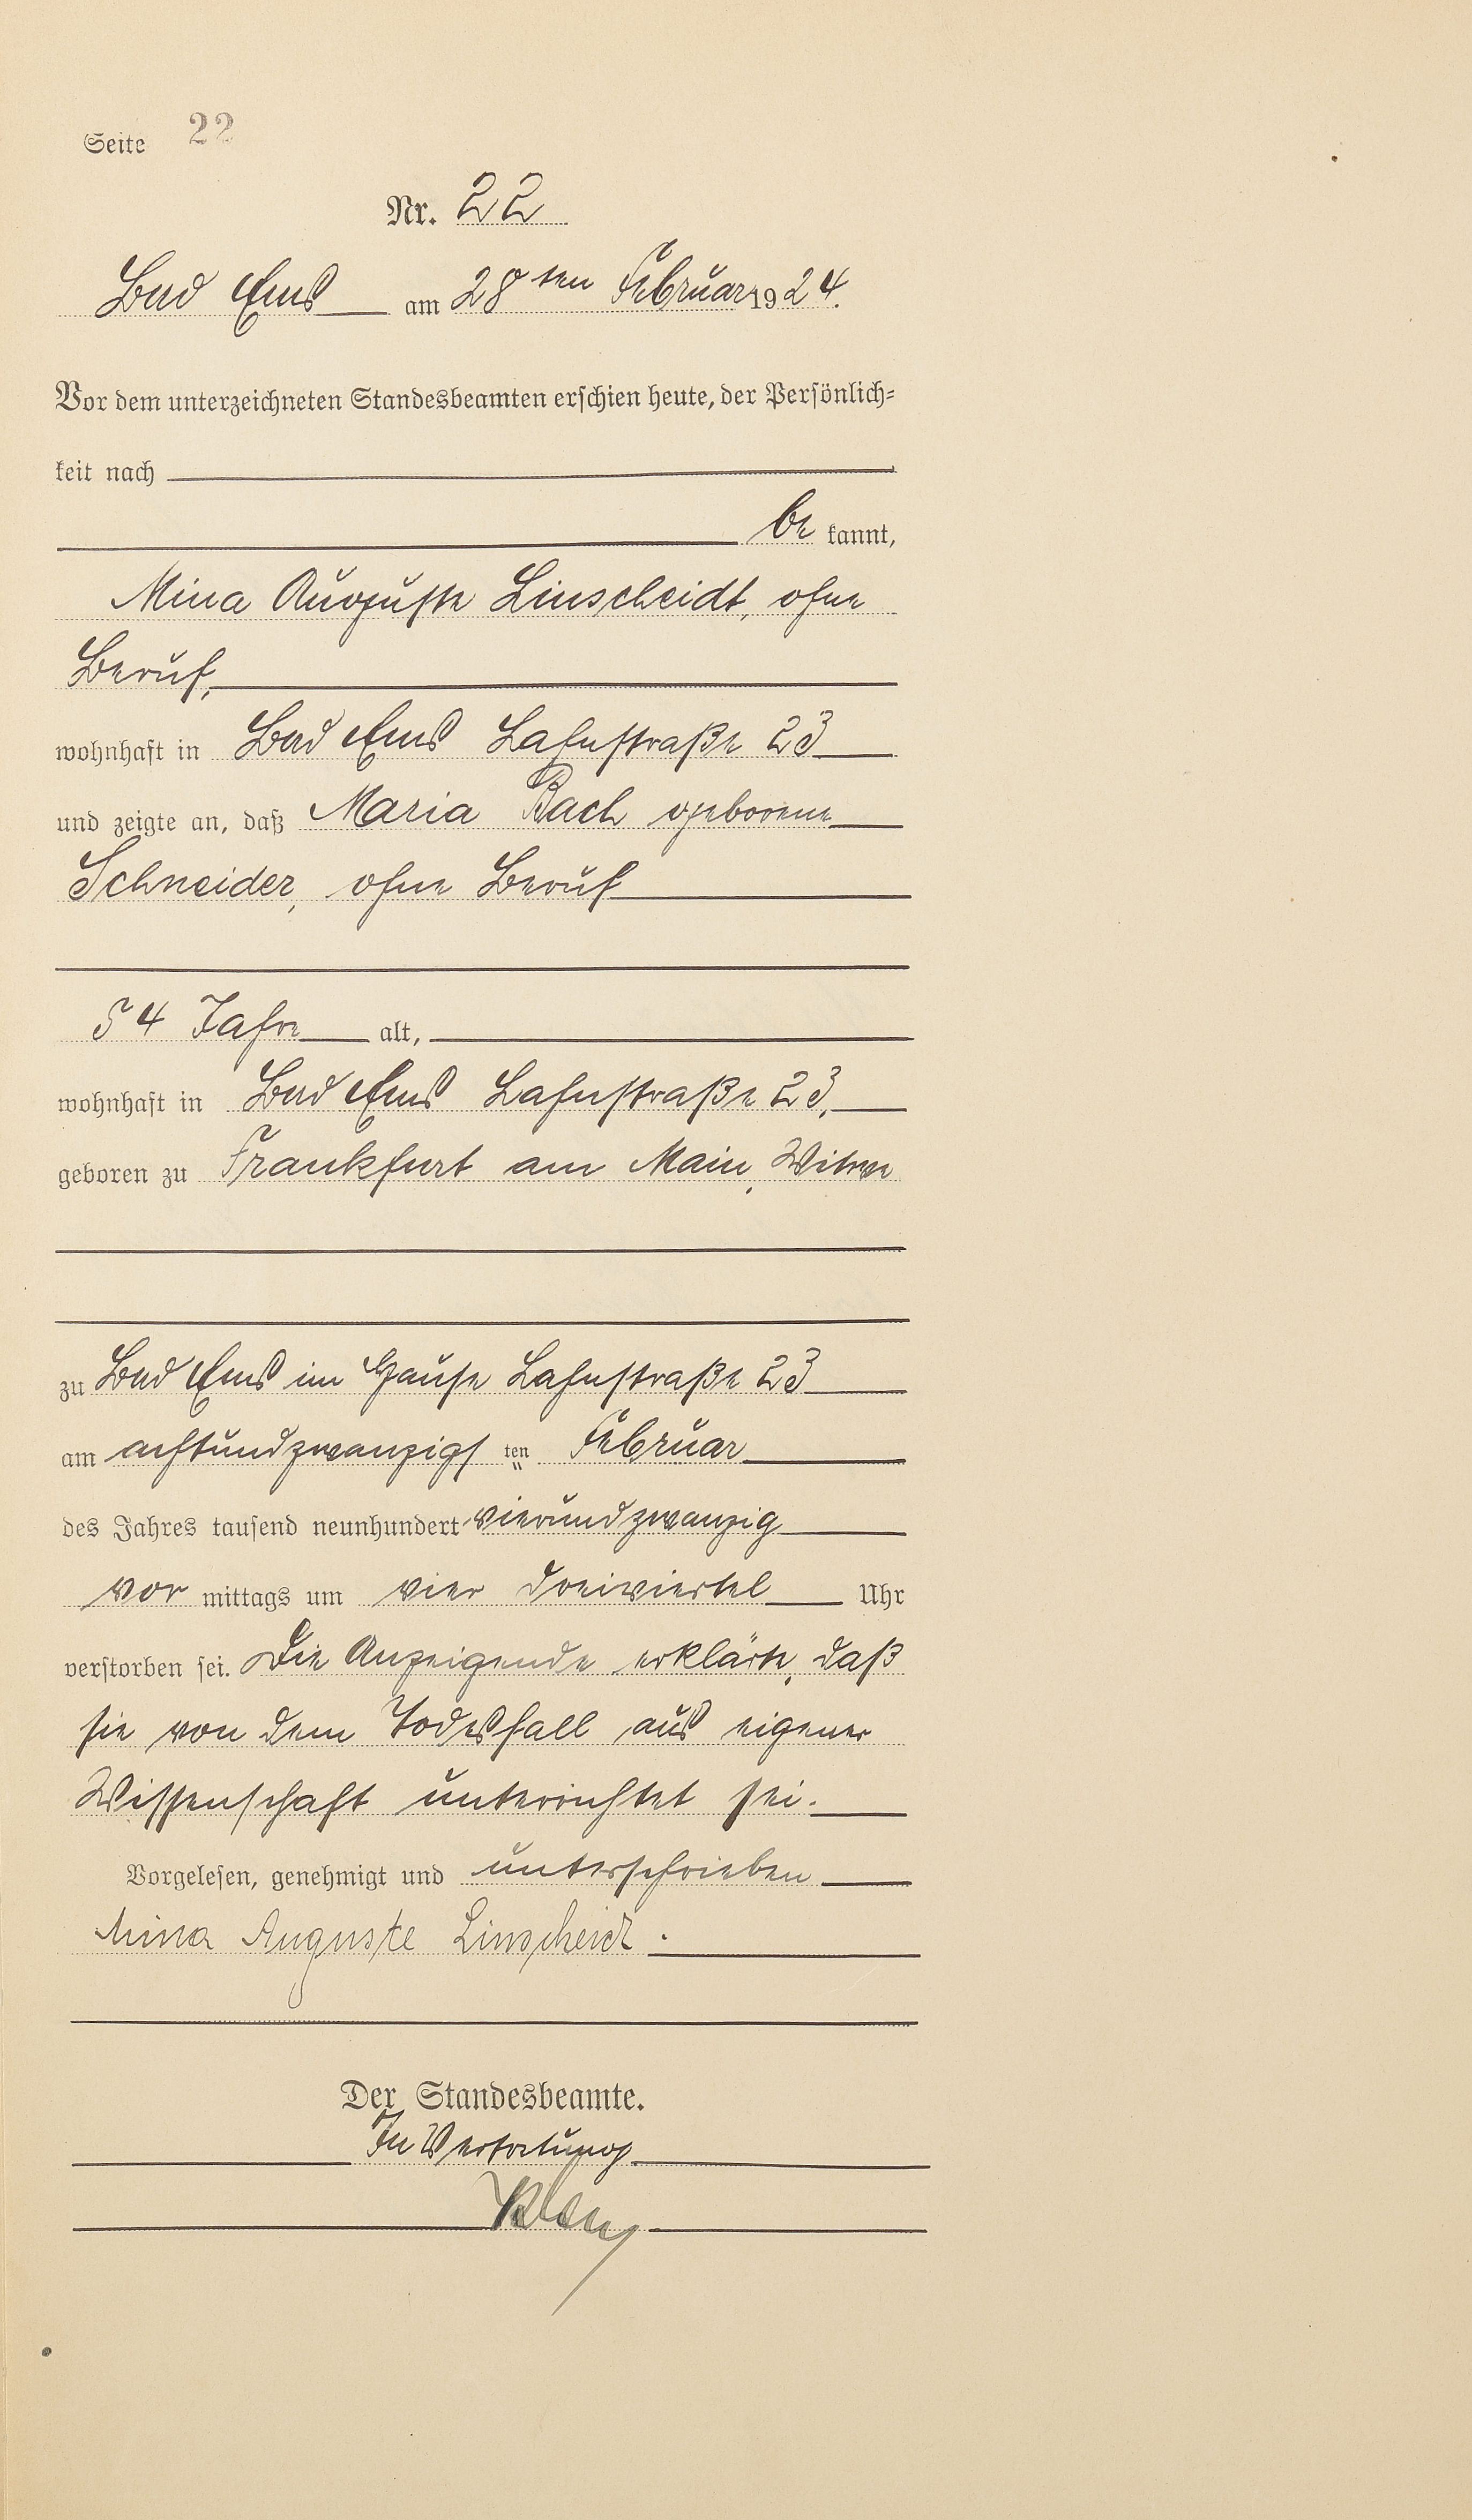 Seite 22
Nr. 22
Bad Ems am 28ten Februar 1924.
Vor dem unterzeichneten Standesbeamten erschien heute, der Persönlich-
keit nach
be kannt,
Mina Auguste Linscheidt, ohne
Beruf,
wohnhaft in Bad Ems Lahnstraße 23
und zeigte an, daß Maria Bach geborene
Schneider, ohne Beruf
54 Jahre alt,
wohnhaft in Bad Ems Lahnstraße 23,
geboren zu Frankfurt am Main, Witwe
zu Bad Ems im Hause Lahnstraße 23
am achtundzwanzigs ten Februar
des Jahres tausend neunhundert vierundzwanzig
vor mittags um vier dreiviertel Uhr
verstorben sei. Die Anzeigende erklärte, daß
sie von dem Todesfall aus eigener
Wissenschaft unterrichtet sei.
Vorgelesen, genehmigt und unterschrieben
Mina Auguste Linscheidt.
Der Standesbeamte.
In Vertretung